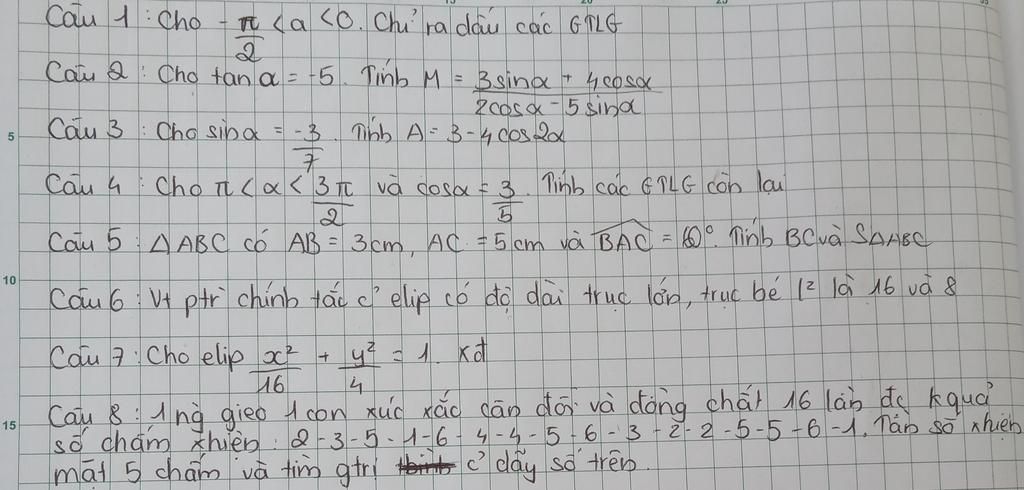 Câu 1 : Cho -π/2 < a < 0. Chỉ ra dấu các GTLG
Câu 2 : Cho tan α = -5. Tính M = (3sinα + 4cosα)/(2cosα - 5sinα)
Câu 3 : Cho sinα = -3/7. Tính A = 3 - 4cos2α
Câu 4 : Cho π < α < 3π/2 và cosα = 3/5. Tính các GTLG còn lại
Câu 5 : ΔABC có AB = 3cm, AC = 5cm và BAC = 60°. Tính BC và SΔABC
Câu 6 : Vt ptr chính tắc c' elip có độ dài trục lớn, trục bé l² là 16 và 8
Câu 7 : Cho elip x²/16 + y²/4 = 1. xđ
Câu 8 : 1 ng gieo 1 con xúc xắc cân đối và đồng chất 16 lần đc kquả
số chấm xhiện : 2-3-5-1-6-4-4-5-6-3-2-2-5-5-6-1. Tần số xhiện
mặt 5 chấm và tìm gtrị c' dãy số trên.
5
10
15